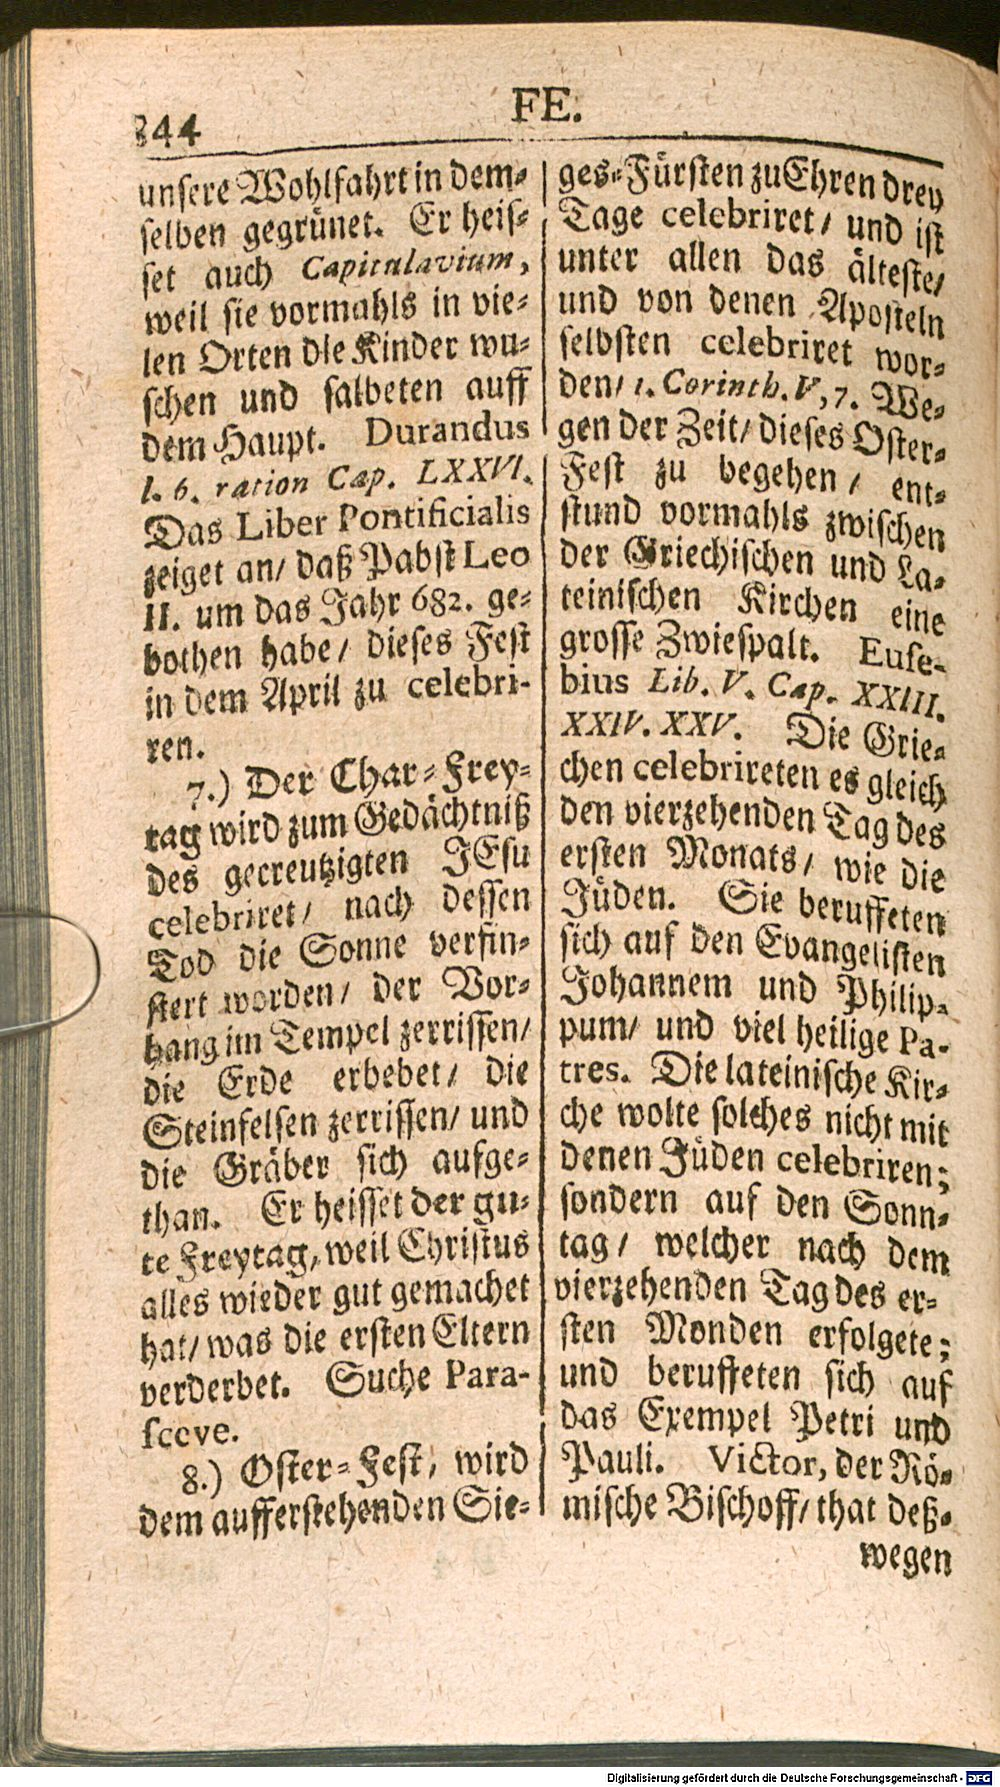 844
FE.
unsere Wohlfahrt in dem-
selben gegrünet. Er heis-
set auch Capitulavium,
weil sie vormahls in vie-
len Orten die Kinder wu-
schen und salbeten auff
dem Haupt. Durandus
l. 6. ration Cap. LXXVI.
Das Liber Pontificialis
zeiget an/ daß Pabst Leo
II. um das Jahr 682. ge-
bothen habe/ dieses Fest
in dem April zu celebri-
ren.
7.) Der Char-Frey-
tag wird zum Gedächtniß
des gecreutzigten JEsu
celebriret/ nach dessen
Tod die Sonne verfin-
stert worden/ der Vor-
hang im Tempel zerrissen/
die Erde erbebet/ die
Steinfelsen zerrissen/ und
die Gräber sich aufge-
than. Er heisset der gu-
te Freytag, weil Christus
alles wieder gut gemachet
hat/ was die ersten Eltern
verderbet. Suche Para-
sceve.
8.) Oster-Fest, wird
dem aufferstehenden Sie-
ges-Fürsten zu Ehren drey
Tage celebriret/ und ist
unter allen das älteste/
und von denen Aposteln
selbsten celebriret wor-
den/ 1. Corinth. V, 7. We-
gen der Zeit/ dieses Oster-
Fest zu begehen/ ent-
stund vormahls zwischen
der Griechischen und La-
teinischen Kirchen eine
grosse Zwiespalt. Euse-
bius Lib. V. Cap. XXIII.
XXIV. XXV. Die Grie-
chen celebrireten es gleich
den vierzehenden Tag des
ersten Monats/ wie die
Jüden. Sie beruffeten
sich auf den Evangelisten
Johannem und Philip-
pum/ und viel heilige Pa-
tres. Die lateinische Kir-
che wolte solches nicht mit
denen Jüden celebriren;
sondern auf den Sonn-
tag/ welcher nach dem
vierzehenden Tag des er-
sten Monden erfolgete;
und beruffeten sich auf
das Exempel Petri und
Pauli. Victor, der Rö-
mische Bischoff/ that deß-
wegen
Digitalisierung gefördert durch die Deutsche Forschungsgemeinschaft - DFG